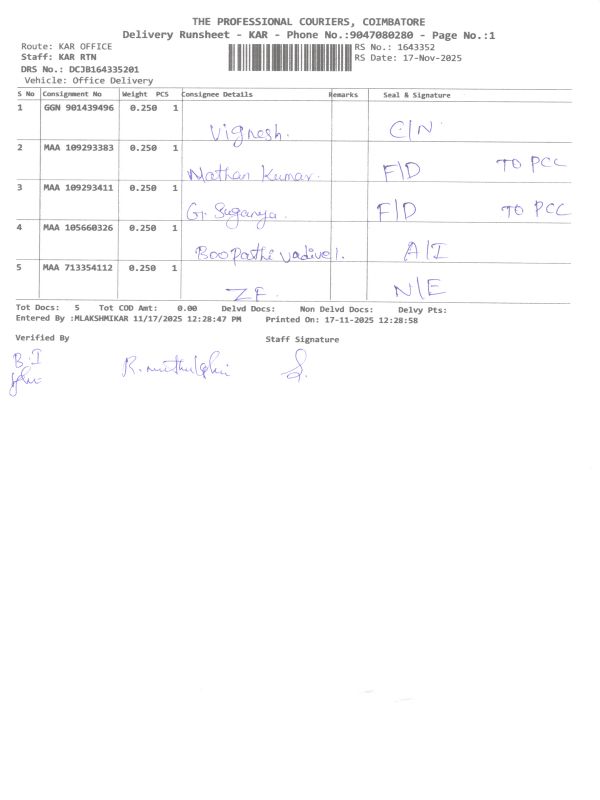 THE PROFESSIONAL COURIERS, COIMBATORE
Delivery Runsheet - KAR - Phone No.:9047080280 - Page No.:1
Route: KAR OFFICE RS No.: 1643352
Staff: KAR RTN RS Date: 17-Nov-2025
DRS No.: DCJB164335201
Vehicle: Office Delivery
S No Consignment No Weight PCS Consignee Details Remarks Seal & Signature
1 GGN 901439496 0.250 1
Vignesh. C/N
2 MAA 109293383 0.250 1
Mathan Kumar. F/D TO PCC
3 MAA 109293411 0.250 1
G. Suganya. F/D TO PCC
4 MAA 105660326 0.250 1
Boopathi vadivel. A/I
5 MAA 713354112 0.250 1
ZF. N/E
Tot Docs: 5 Tot COD Amt: 0.00 Delvd Docs: Non Delvd Docs: Delvy Pts:
Entered By :MLAKSHMIKAR 11/17/2025 12:28:47 PM Printed On: 17-11-2025 12:28:58
Verified By Staff Signature
B.I